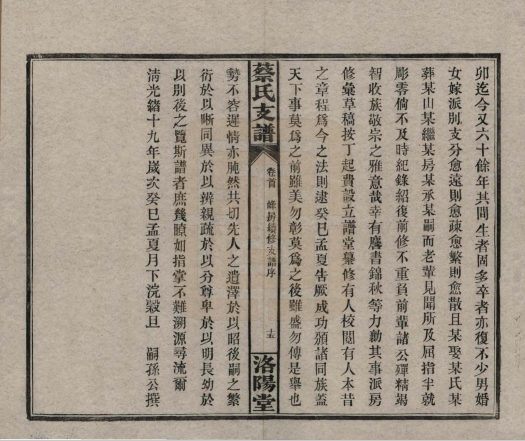 卯迄今又六十餘年其間生者固多卒者亦復不少男婚
女嫁派別支分愈遠則愈疎愈繁則愈散且某娶某氏某
葬某山某繼某房某承某嗣而老輩見聞所及屈指半就
彫零倘不及時紀錄紹復前修不重負前輩諸公殫精竭
智收族敬宗之雅意哉幸有麂書錦秋等力勷其事派房
修彙草稿按丁起費設立譜堂纂修有人校閱有人本昔
之章程爲今之法則逮癸巳孟夏告厥成功頒諸同族蓋
天下事莫爲之前雖美勿彰莫爲之後雖盛勿傳是舉也
蔡氏支譜
卷首
續修支譜序
十五
洛陽堂
勢不容遲情亦肫然共切先人之遺澤於以昭後嗣之繁
衍於以晰同異於以辨親疏於以分尊卑於以明長幼於
以別後之覽斯譜者庶幾瞭如指掌不難溯源尋流爾
淸光緒十九年歲次癸巳孟夏月下浣穀旦
嗣孫公撰